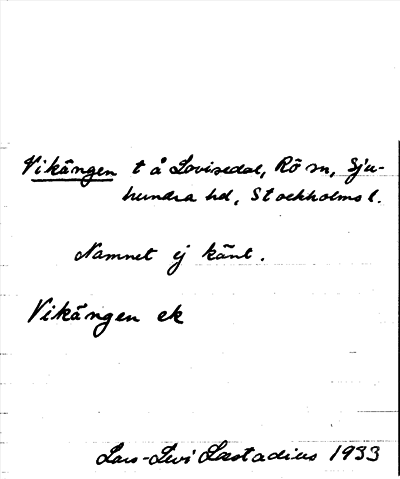 Vikängen t å Lovisedal, Rö sn, Sju-
hundra hd, Stockholms l.
Namnet ej känt.
Vikängen ek
Lars-Levi Læstadius 1933